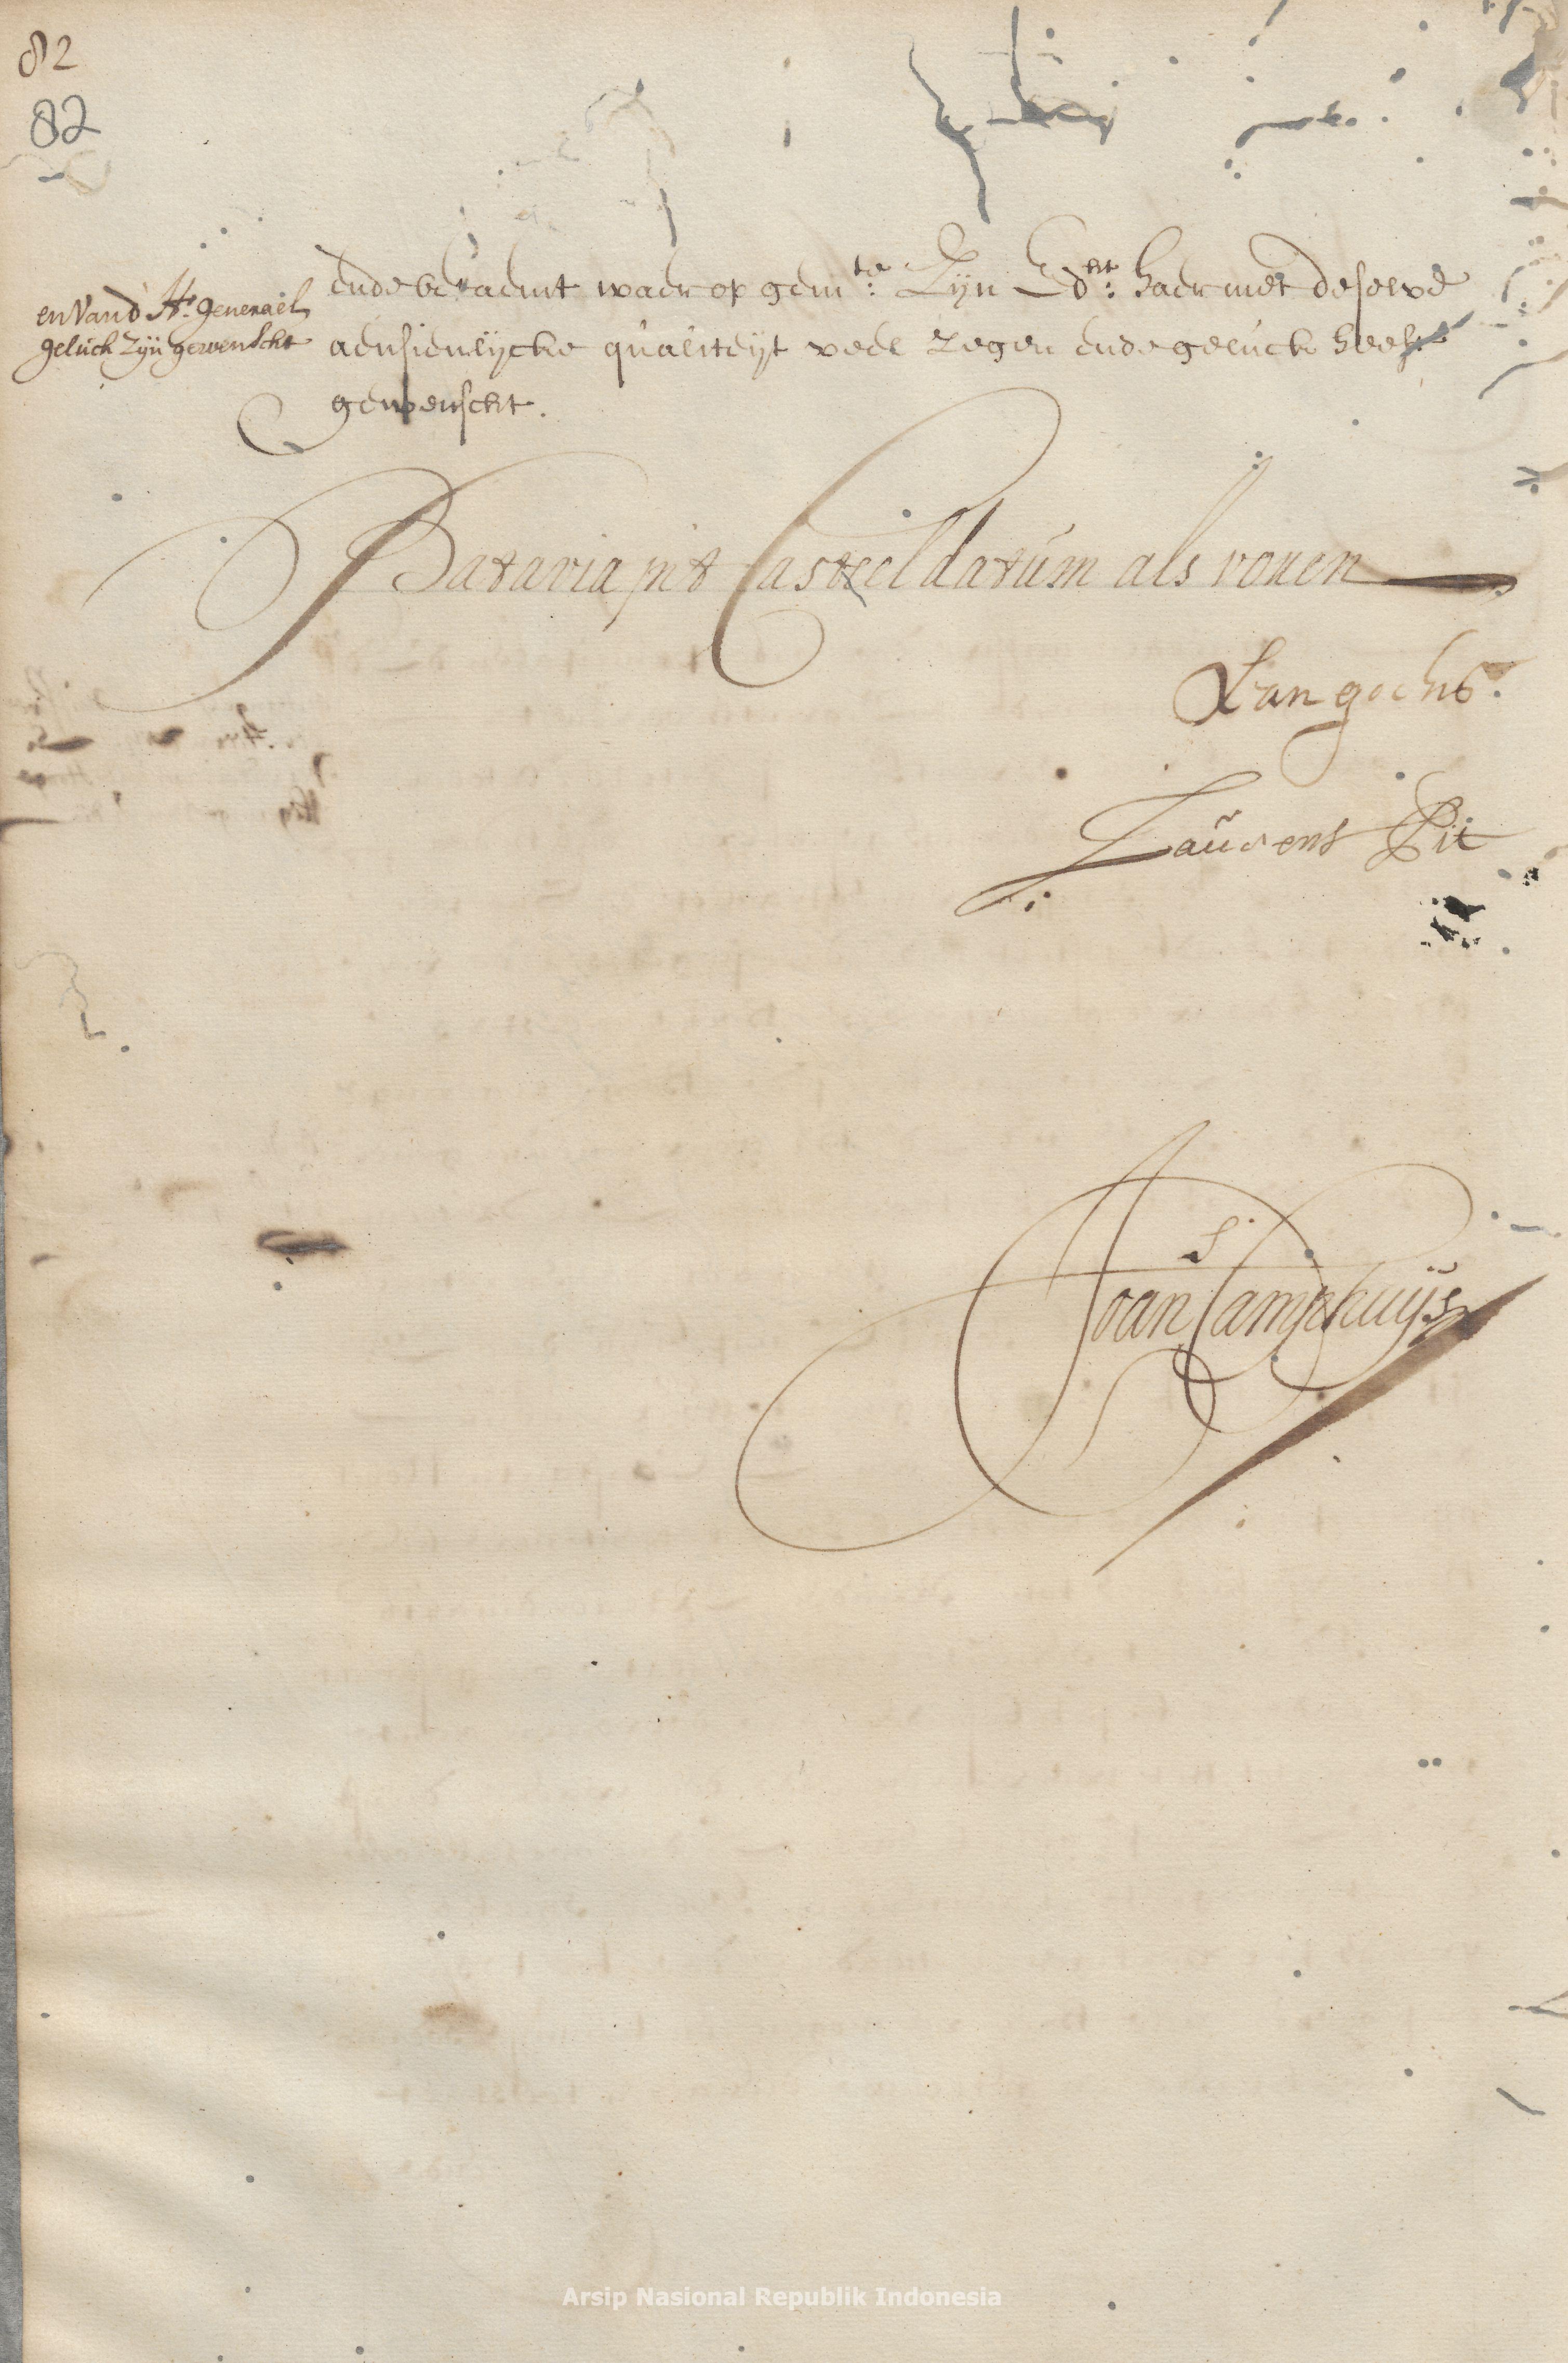 82
82
en Vand Hr. generael
geluck zyn gewenscht
ende beraemt waer op gemte: Zijn Edht: haer met deselve
aensienlijcke qualiteijt veel zegen ende geluck heeft
gewenscht.
Batavia int Casteel datum als voren
R van goens.
Laurens Pit
Joan Camphuys
Arsip Nasional Republik Indonesia